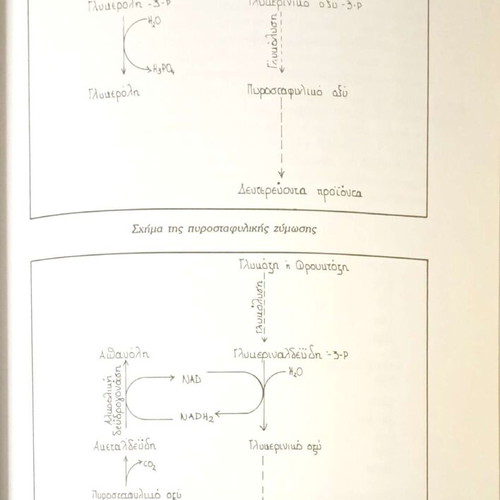 Γλυκερόλη -3-P
Γλυκερινικό οξύ -3-P
H₂O
Γλυκόλυση
H₃PO₄
Γλυκερόλη
Πυροσταφυλικό οξύ
Δευτερεύοντα προϊόντα
Σχήμα της πυροσταφυλικής ζύμωσης
Γλυκόζη ή Φρουκτόζη
Γλυκόλυση
Αιθανόλη
Γλυκεριναλδεΰδη -3-P
Αλκοολική δεϋδρογονάση
NAD
H₂O
NADH₂
Ακεταλδεΰδη
Γλυκερινικό οξύ
CO₂
Πυροσταφυλικό οξύ